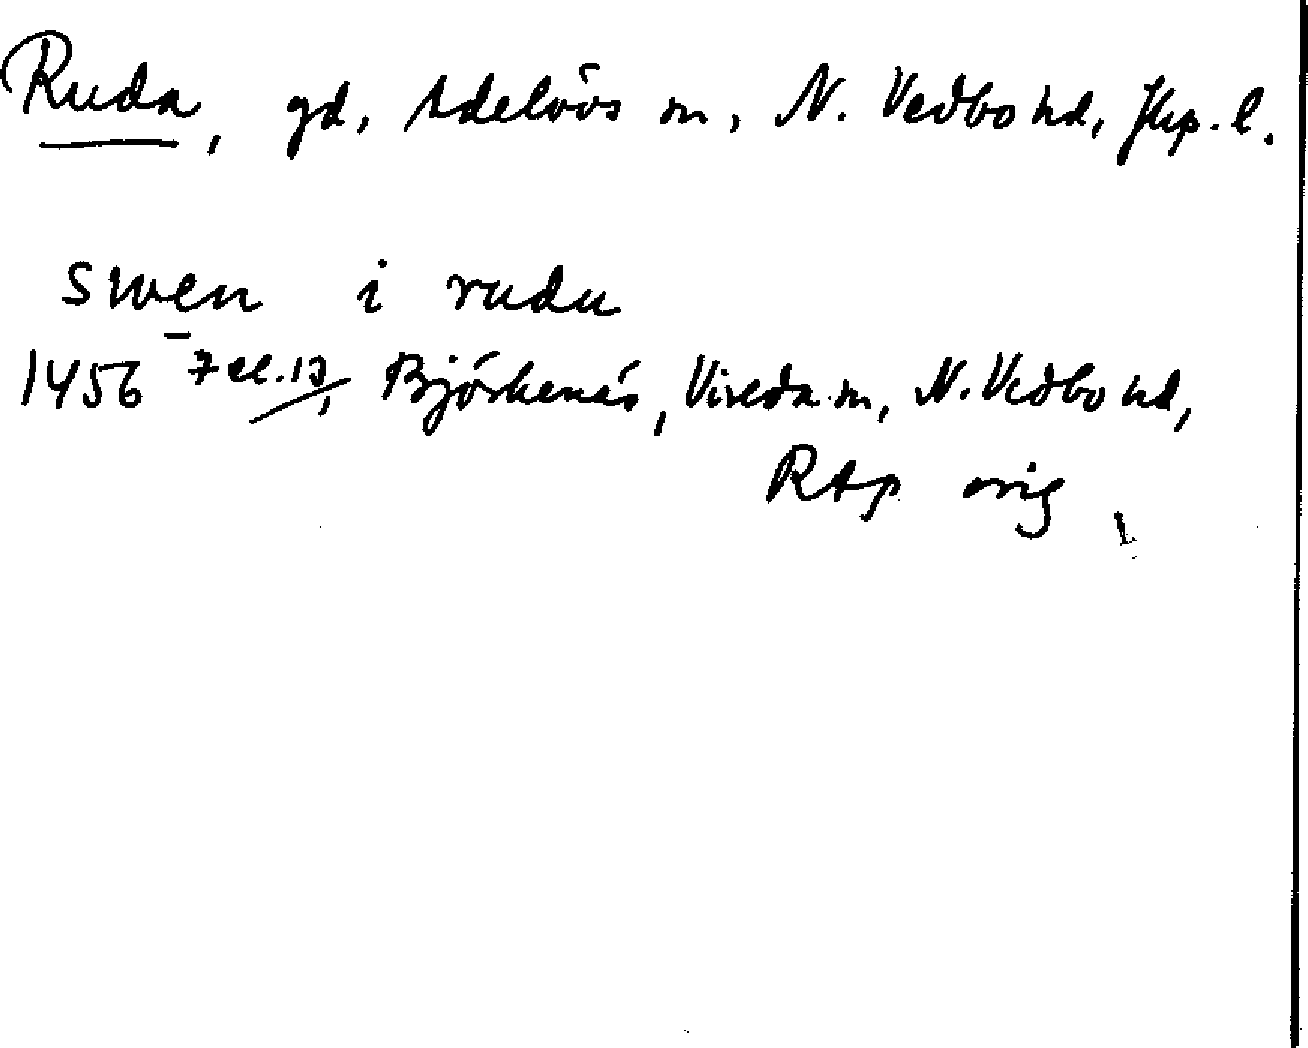 Ruda, gd, Adelövs sn, N. Vedbo hd, Jkp. l.
swen i rudu
1456 7 el. 17/, Björkenäs, Vireda sn, N. Vedbo hd,
RAp orig